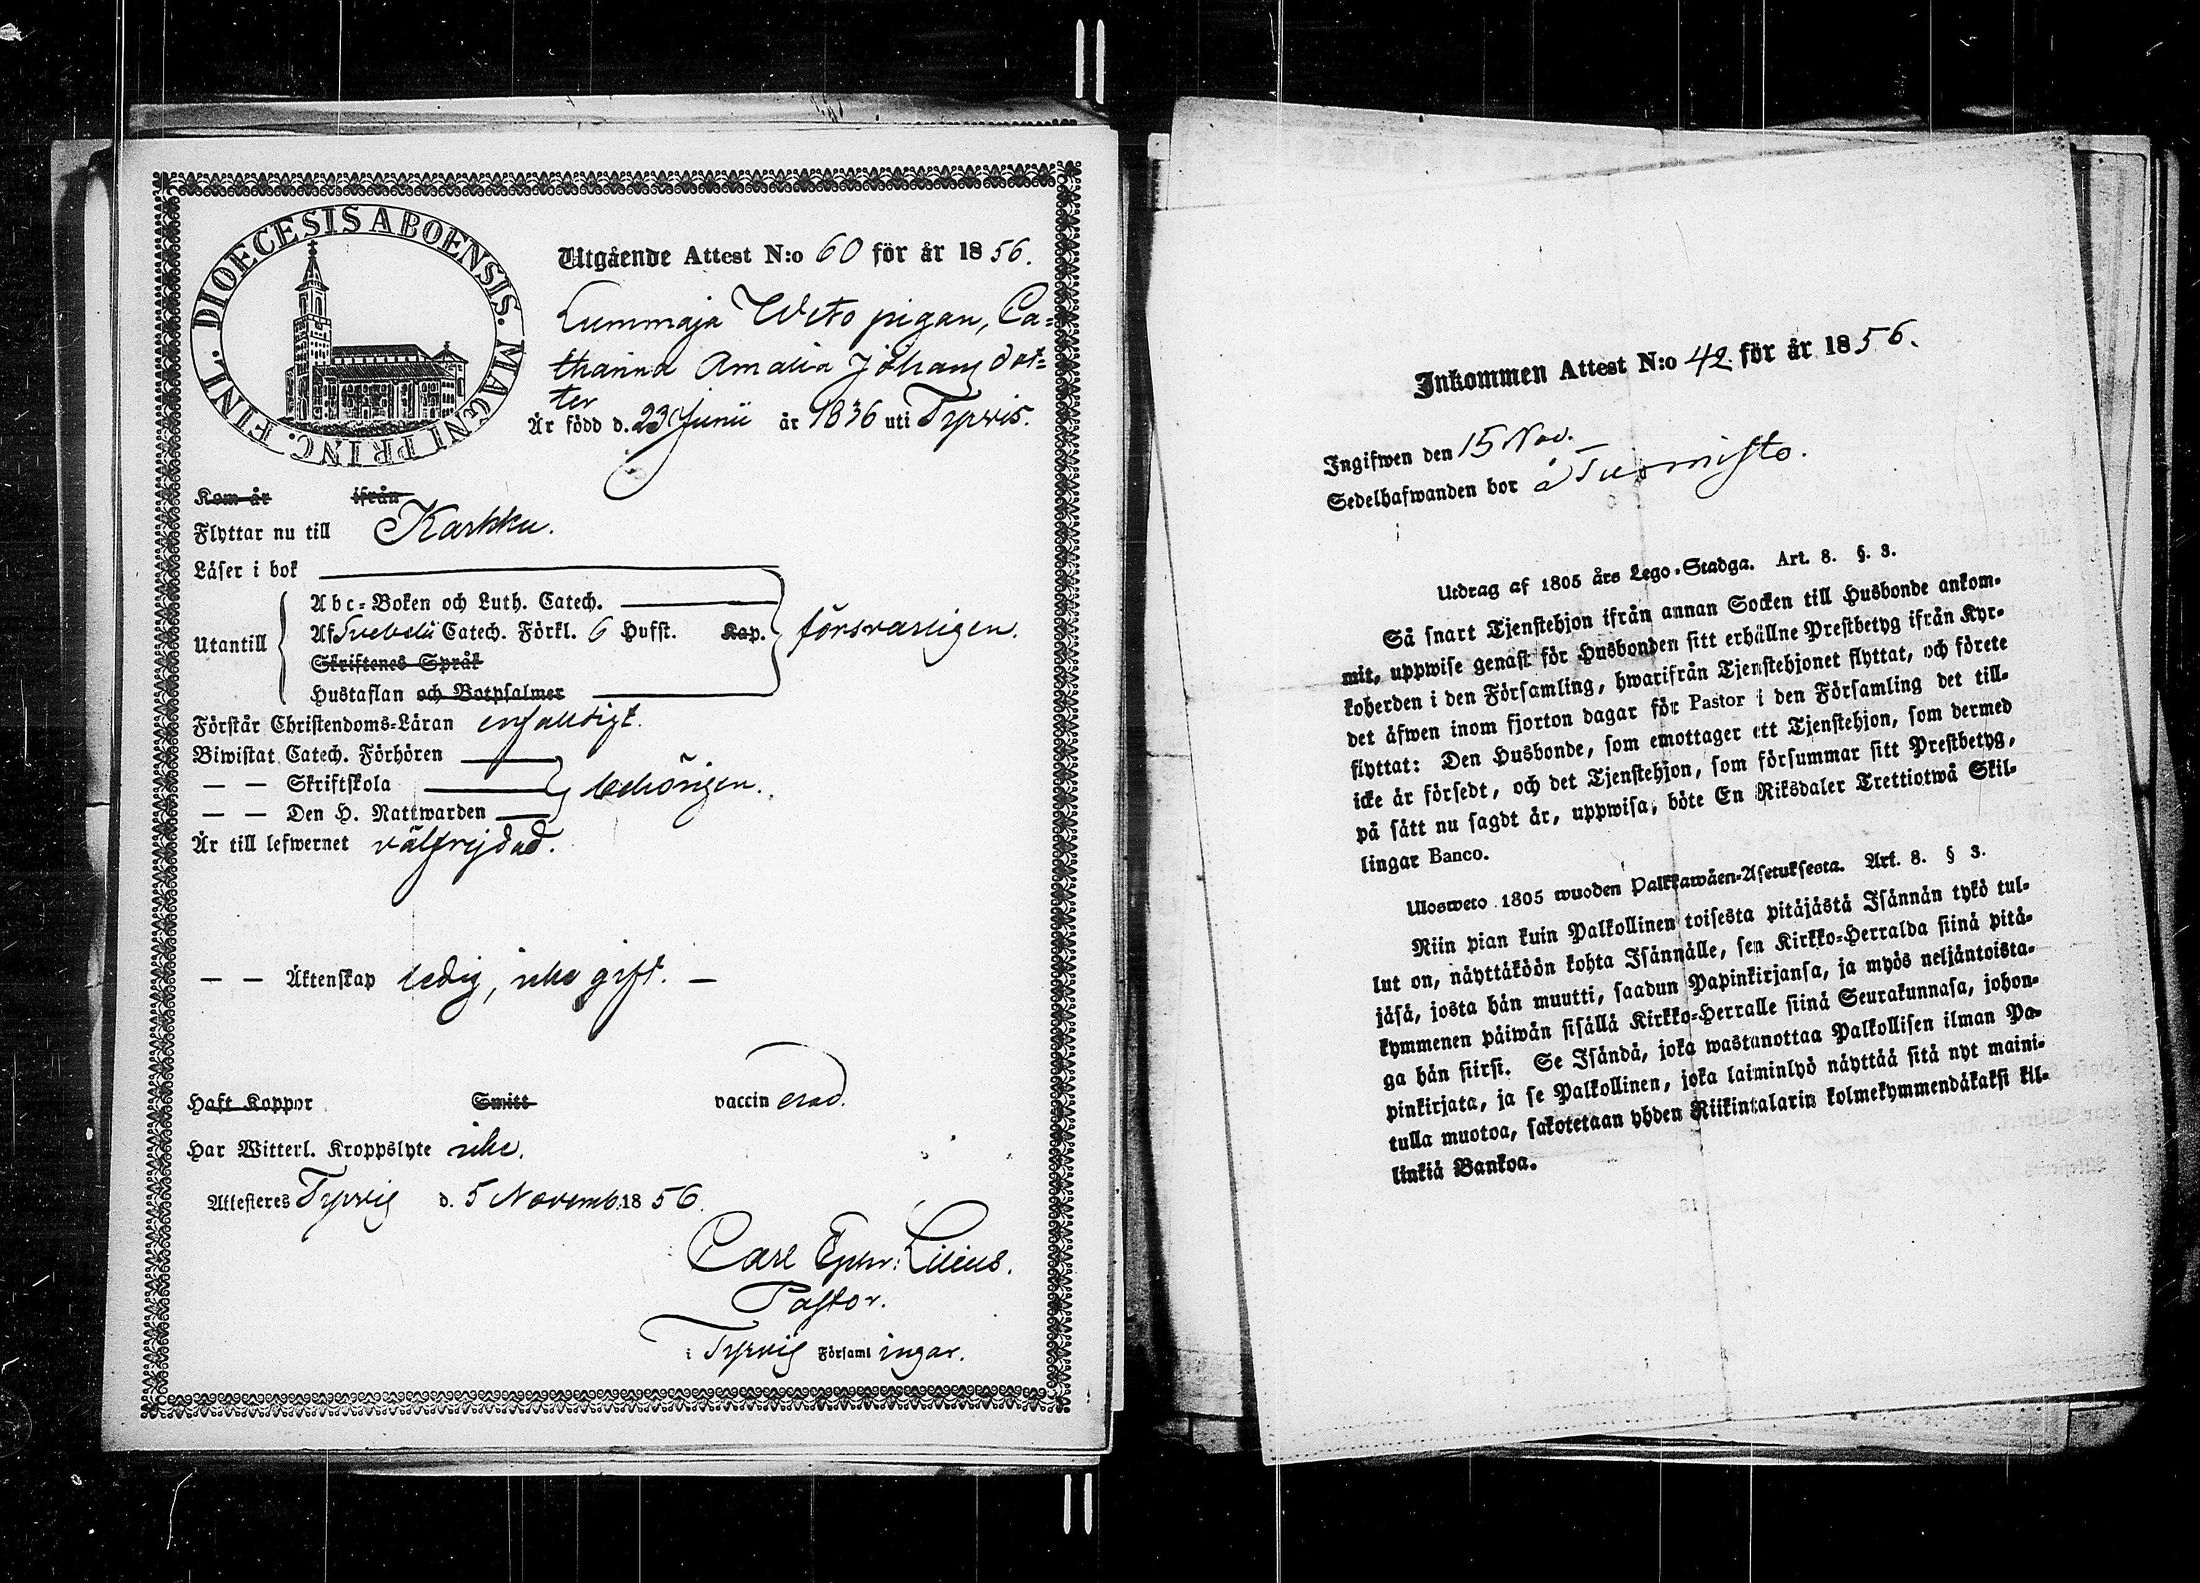 DIOECESIS ABOENSIS. MAGNI PRINC. FINL.
Utgående Attest N:o 60 för år 1856.
Lummaja Weto pigan, Ca=
tharina Amalia Johans dot=
ter
Är född d. 23 Junii år 1836 uti Tyrvis.
Kom år ifrån
Flyttar nu till Karkku.
Läser i bok
Utantill
Abc=Boken och Luth. Catech.
Af Svebelii Catech. Förkl. 6 Hufst. Kap.
försvarligen.
Skriftenes Språk
Hustaflan och Botpsalmer
Förstår Christendoms=Läran enfaldigt.
Biwistat Catech. Förhören
— — Skriftskola
behörigen.
— — Den H. Nattwarden
Är till lefwernet välfrejdad.
— — Äktenskap ledig, icke gift. —
Haft Koppor Smitt vaccinerad.
Har Witterl. Kroppslyte icke.
Attesteres Tyrvis d. 5 Novemb. 1856.
Carl Lilius.
Pastor.
i Tyrvis Församlingar.
Inkommen Attest N:o 42. för år 1856.
Ingifwen den 15 Nov.
Sedelhafwanden bor å Tuomisto.
Utdrag af 1805 års Lego-Stadga. Art. 8. §. 3.
Så snart Tjenstehjon ifrån annan Socken till Husbonde ankom-
mit, uppwise genast för Husbonden sitt erhållne Prestbetyg ifrån Kyr-
koherden i den Församling, hwarifrån Tjenstehjonet flyttat, och förete
det äfwen inom fjorton dagar för Pastor i den Församling det till-
flyttat: Den Husbonde, som emottager ett Tjenstehjon, som dermed
icke är försedt, och det Tjenstehjon, som försummar sitt Prestbetyg,
på sätt nu sagdt är, uppwisa, böte En Riksdaler Trettiotwå Skil-
lingar Banco.
Ulosweto 1805 wuoden Palkkawäen-Asetuksesta. Art. 8. § 3.
Niin pian kuin Palkollinen toisesta pitäjästä Isännän tykö tul-
lut on, näyttäköön kohta Isännälle, sen Kirkko=Herralda siinä pitä-
jäsä, josta hän muutti, saadun Papinkirjansa, ja myös neljäntoista-
kymmenen päiwän sisällä Kirkko=Herralle siinä Seurakunnasa, johon-
ga hän siirsi. Se Isändä, joka wastanottaa Palkollisen ilman Pa-
pinkirjata, ja se Palkollinen, joka laiminlyö näyttää sitä nyt maini-
tulla muotoa, sakotetaan yhden Riikintalarin kolmekymmendäkaksi kil-
linkiä Bankoa.